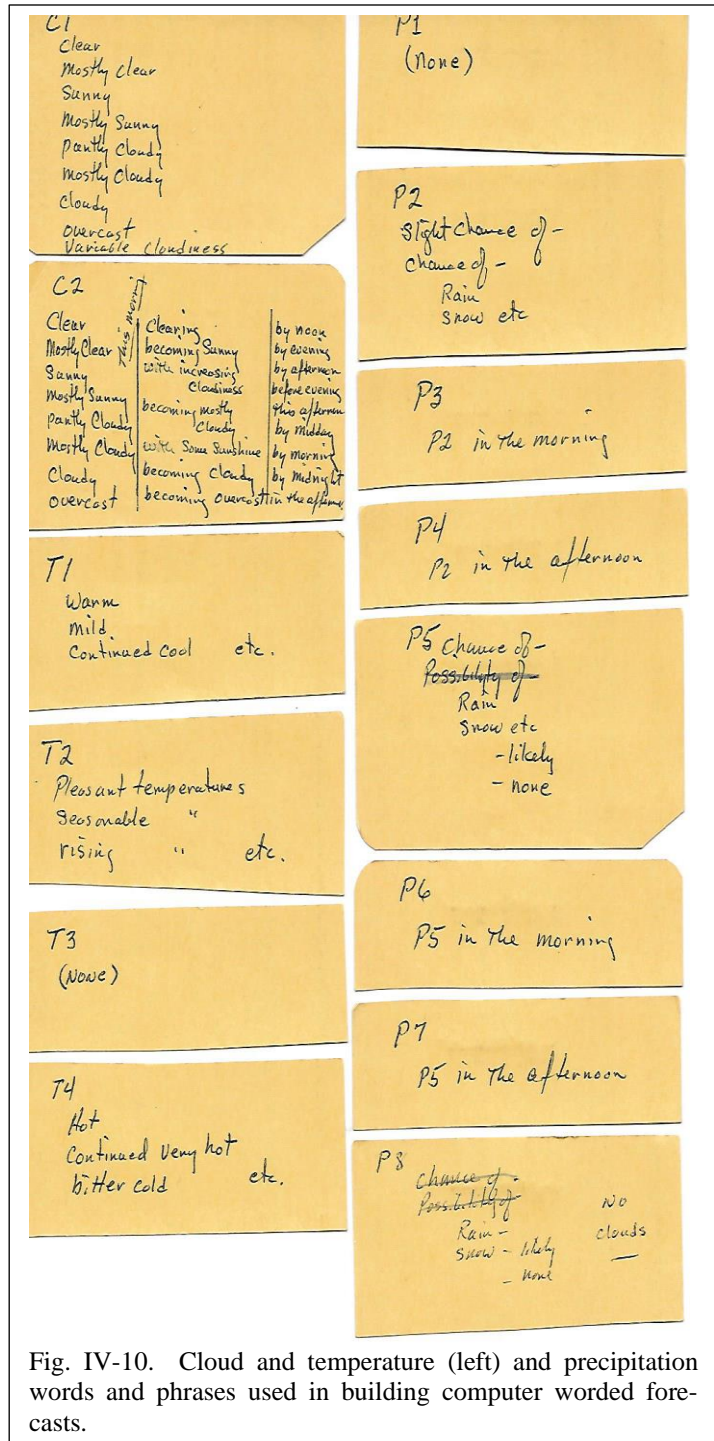 C1
Clear
Mostly Clear
Sunny
Mostly Sunny
Partly Cloudy
Mostly Cloudy
Cloudy
Overcast
Variable Cloudiness
C2
This morning
Clear
Mostly Clear
Sunny
Mostly Sunny
Partly Cloudy
Mostly Cloudy
Cloudy
Overcast
Clearing
becoming Sunny
with increasing
Cloudiness
becoming mostly
Cloudy
with Some Sunshine
becoming cloudy
becoming overcast
by noon
by evening
by afternoon
before evening
this afternoon
by midday
by morning
by midnight
in the afternoon
T1
Warm
Mild
Continued Cool etc.
T2
Pleasant temperatures
Seasonable "
rising " etc.
T3
(None)
T4
Hot
Continued very hot
bitter cold etc.
P1
(None)
P2
Slight Chance of -
Chance of -
Rain
Snow etc
P3
P2 in the morning
P4
P2 in the afternoon
P5 Chance of -
Possibility of -
Rain
Snow etc
- likely
- none
P6
P5 in the morning
P7
P5 in the afternoon
P8
Chance of -
Possibility of
Rain -
Snow - likely
- none
No
clouds
Fig. IV-10. Cloud and temperature (left) and precipitation
words and phrases used in building computer worded fore-
casts.